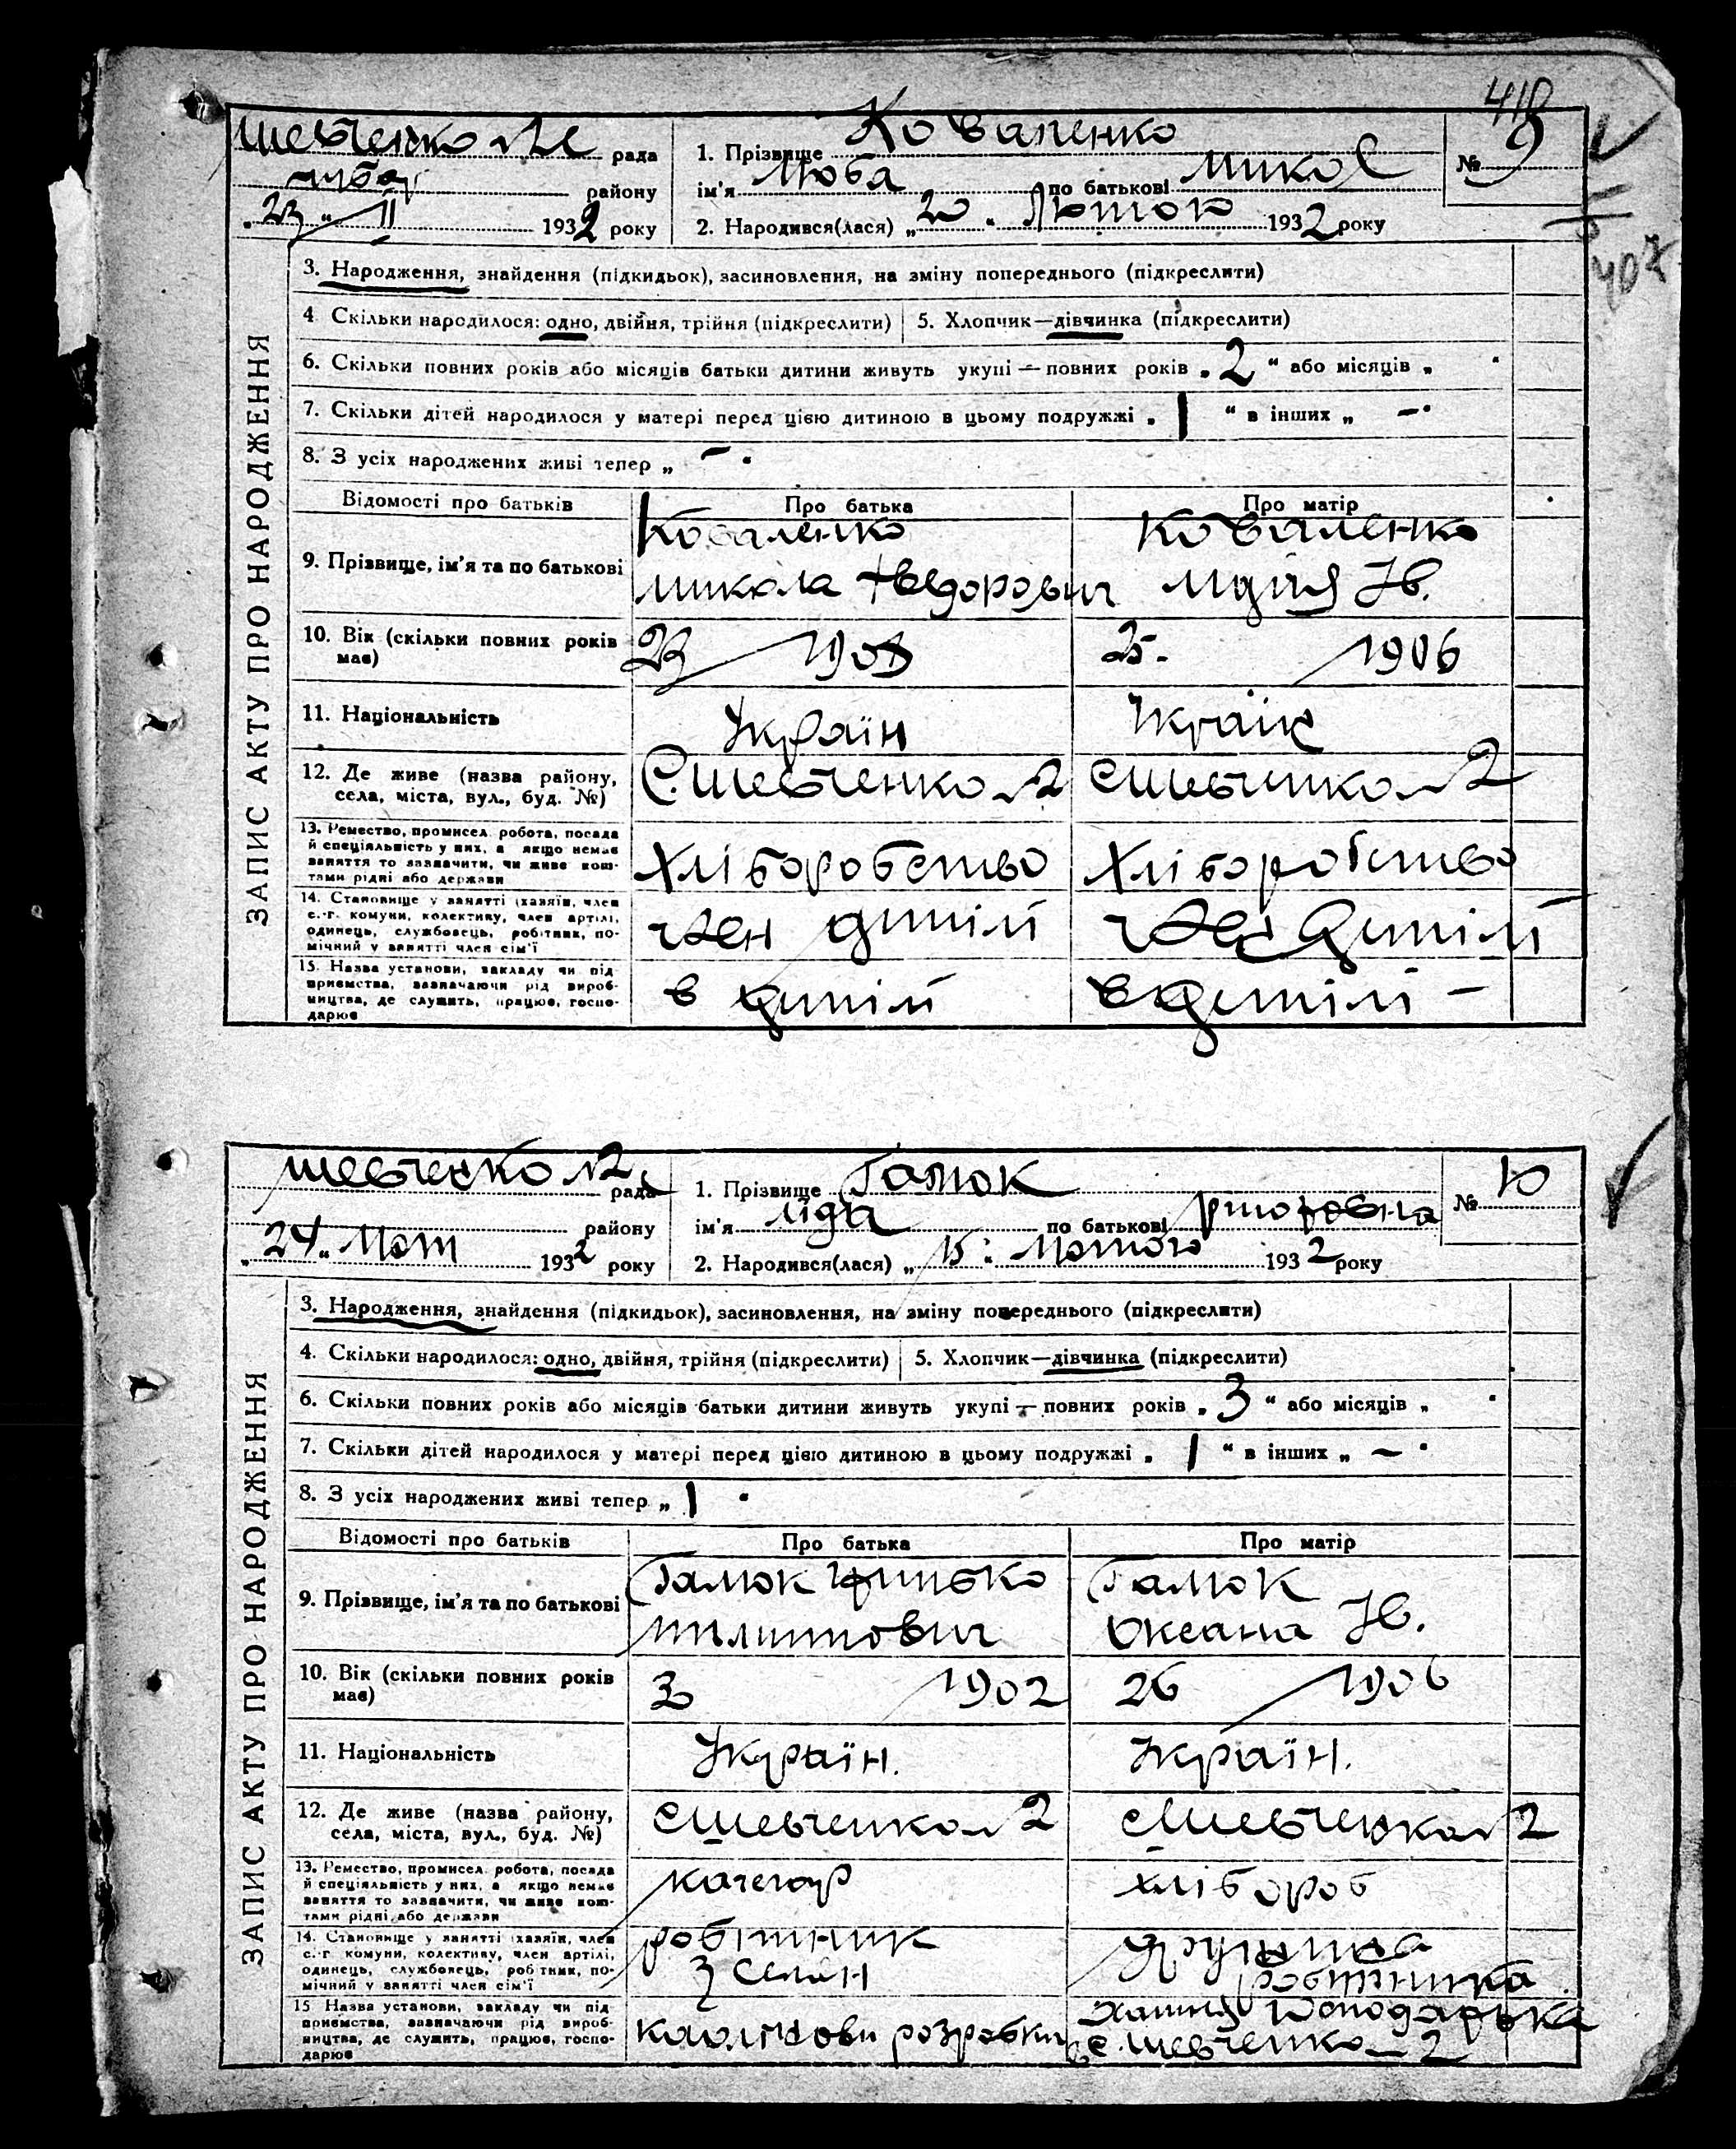 418
Шевченко №2 рада
районy
„23“ II 1932 року
1. Прізвище Коваленко
ім'я Люба по батькові Микол
№ 9
2. Народився(лася) „20“ Лютого 1932 року
407
ЗАПИС АКТУ ПРО НАРОДЖЕННЯ
3. Народження, знайдення (підкидьок), засиновлення, на зміну попереднього (підкреслити)
4. Скільки народилося: одно, двійня, трійня (підкреслити) 5. Хлопчик—дівчинка (підкреслити)
6. Скільки повних років або місяців батьки дитини живуть укупі — повних років „2“ або місяців „
7. Скільки дітей народилося у матері перед цією дитиною в цьому подружжі „1“ в інших „ —
8. З усіх народжених живі тепер „ —
Відомості про батьків Про батька Про матір
9. Прізвище, ім'я та по батькові Коваленко Микола Федорович Коваленко Лідія Ів.
10. Вік (скільки повних років має) 23 190 25. 1906
11. Національність Україн Україн
12. Де живе (назва району, села, міста, вул., буд. №) С. Шевченко №2 С Шевченко №2
13. Ремество, промисел робота, посада й спеціяльність у них, а якщо немає заняття то зазначити, чи живе коштами рідні або держави Хліборобство Хліборобство
14. Становище у занятті (хазяїн, член с.-г. комуни, колективу, член артілі, одинець, службовець, робітник, помічний у занятті член сім'ї член артілі член артілі
15. Назва установи, закладу чи підприємства, зазначаючи рід виробництва, де служить, працює, господарює в артілі в артілі —
Шевченко №2 рада
району
„24“ Лют 1932 року
1. Прізвище Галюк
ім'я Ліда по батькові
№ 10
2. Народився(лася) „15“ Лютого 1932 року
ЗАПИС АКТУ ПРО НАРОДЖЕННЯ
3. Народження, знайдення (підкидьок), засиновлення, на зміну попереднього (підкреслити)
4. Скільки народилося: одно, двійня, трійня (підкреслити) 5. Хлопчик—дівчинка (підкреслити)
6. Скільки повних років або місяців батьки дитини живуть укупі — повних років „3“ або місяців „
7. Скільки дітей народилося у матері перед цією дитиною в цьому подружжі „1“ в інших „ —
8. З усіх народжених живі тепер „1
Відомості про батьків Про батька Про матір
9. Прізвище, ім'я та по батькові Галюк Галюк Оксана Ів.
10. Вік (скільки повних років має) 30 1902 26 1906
11. Національність Україн. Україн.
12. Де живе (назва району, села, міста, вул., буд. №) с Шевченко №2 с Шевченко №2
13. Ремество, промисел робота, посада й спеціяльність у них, а якщо немає заняття то зазначити, чи живе коштами рідні або держави кочегар хлібороб
14. Становище у занятті (хазяїн, член с.-г. комуни, колективу, член артілі, одинець, службовець, робітник, помічний у занятті член сім'ї робітник з селян дружина робітника
15 Назва установи, закладу чи підприємства, зазначаючи рід виробництва, де служить, працює, господарює каолінови розробки господарька в с. Шевченко 2